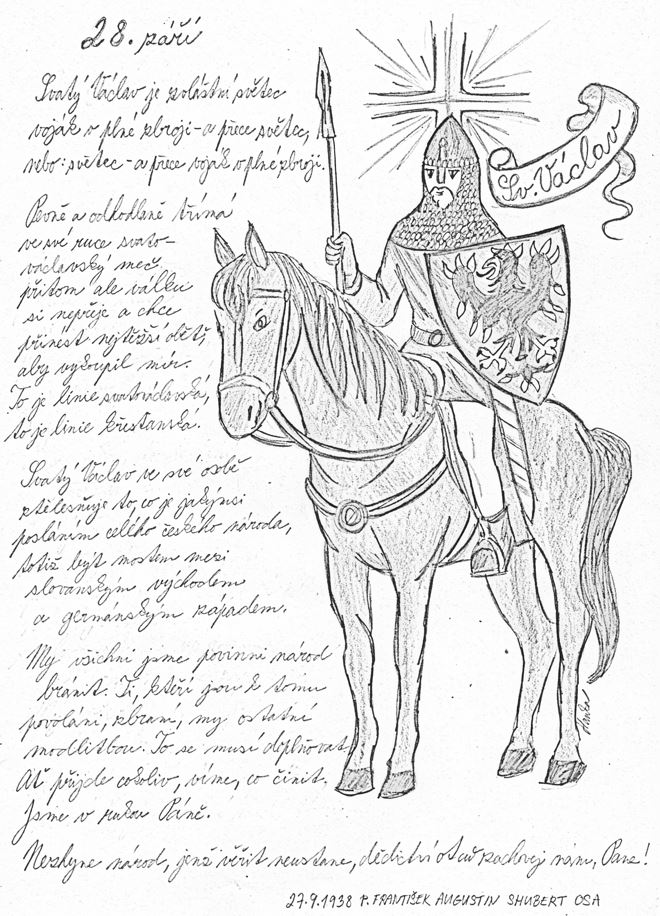 28. září
Svatý Václav je zvláštní světec
voják v plné zbroji - a přece světec,
nebo: světec - a přece voják v plné zbroji.
Pevně a odhodlaně třímá
ve své ruce svato-
václavský meč,
přitom ale válku
si nepřeje a chce
přinést nejtěžší oběti,
aby vykoupil mír.
To je linie svatováclavská,
to je linie křesťanská.
Svatý Václav ve své osobě
ztělesňuje to, co je jakýmsi
posláním celého českého národa,
totiž být mostem mezi
slovanským východem
a germánským západem.
My všichni jsme povinni národ
bránit. Ti, kteří jsou k tomu
povoláni, zbraní, my ostatní
modlitbou. To se musí doplňovat.
Ať přijde cokoliv, víme, co činit.
Jsme v rukou Páně.
Nezhyne národ, jenž věřit neustane, dědictví otců zachovej nám, Pane!
Sv. Václav
27.9.1938 P. FRANTIŠEK AUGUSTIN SHUBERT OSA